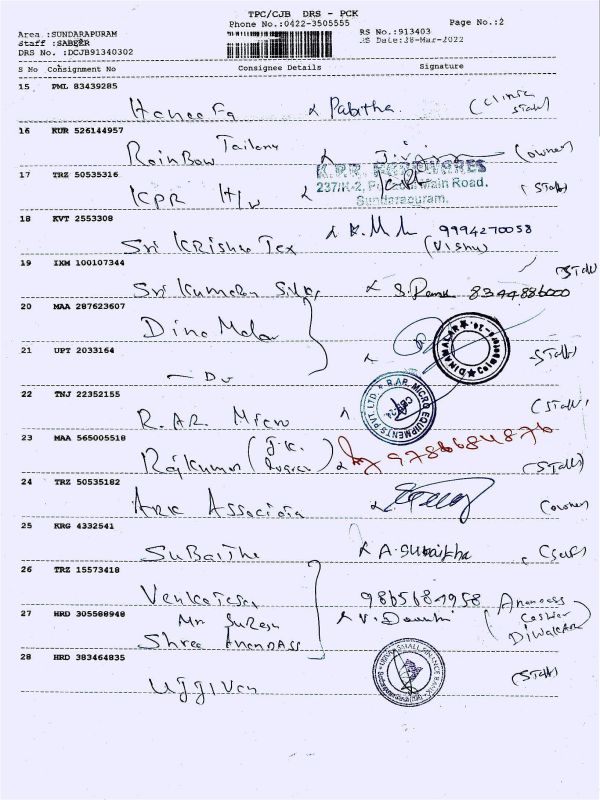 TPC/CJB DRS - PCK
Phone No.:0422-3505555 Page No.:2
Area :SUNDARAPURAM RS No.:913403
Staff :SABEER RS Date:28-Mar-2022
DRS No. :DCJB91340302
S No Consignment No Consignee Details Signature
15 PML 83439285
Haneefa Pabitha. (Clinic Staff)
16 KUR 526144957
RainBow Tailors (owner)
17 TRZ 50535316
K.P.R. HARDWARES
237/H-2, Main Road,
Sundarapuram.
KPR H/w (Staff)
18 KVT 2553308
Sri Krishna Tex 9994270058
(Vishnu)
19 IXM 100107344 (Staff)
Sri Kumaran Silks 8344886000
20 MAA 287623607
Dina Malar
DINAMALAR
21 UPT 2033164 (Staff)
- Do
22 TNJ 22352155
R.AR. MICRO EQUIPMENTS PVT. LTD
R. AR. Micro (Staff)
23 MAA 565005518
Rajkumar (J.K. 9786684876
(Staff)
24 TRZ 50535182
Ark Associate (owner)
25 KRG 4332541
SuBaitha A. Subaitha (Self)
26 TRZ 15573418
Venkatesa 9865681958
27 HRD 305588948
Mr Suresh
Shree Anandass (Anandass Cashier Diwakar)
28 HRD 383464835
SMALL FINANCE BANK
Ujjivan (Staff)